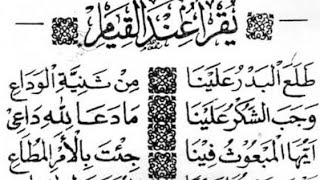 يُقْرَأُ عِنْدَ الْقِيَامِ
طَلَعَ الْبَدْرُ عَلَيْنَا مِنْ ثَنِيَّةِ الْوَدَاعِ
وَجَبَ الشُّكْرُ عَلَيْنَا مَا دَعَا لِلّٰهِ دَاعِي
اَيُّهَا الْمَبْعُوْثُ فِيْنَا جِئْتَ بِالْأَمْرِ الْمُطَاعِ